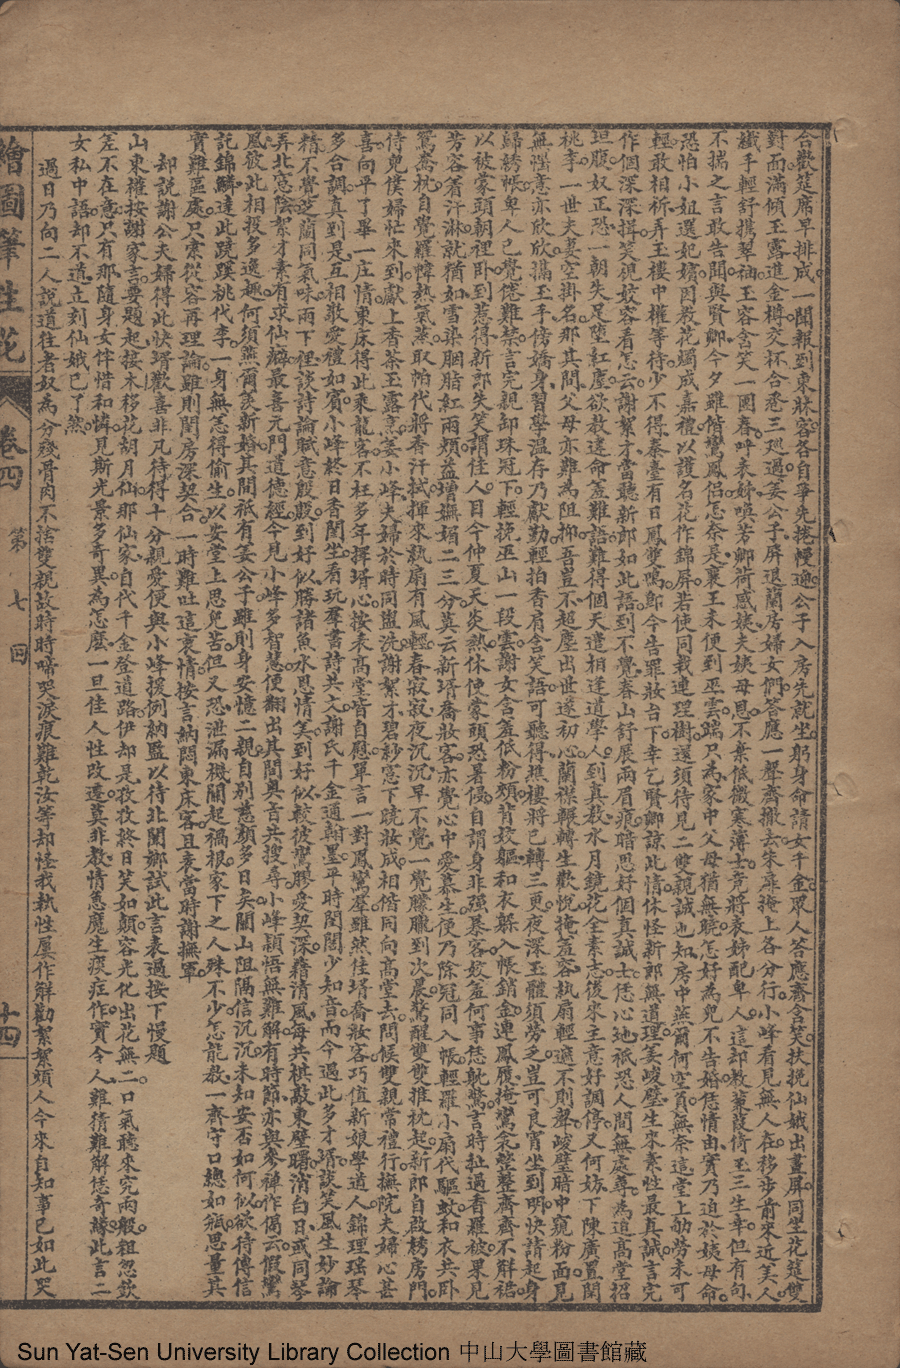 合歡筵席早排成一聞報到東牀客各自爭先捲幔迎公子入房先就坐躬身命請女千金眾人答應齊含笑扶挽仙娥出畫屏同坐花筵雙
對面滿傾玉露進金樽交杯合巹三廵過姜公子屏退蘭房婦女們答應一聲齊撤去朱扉掩上各分行小峰看見無人在移步前來近美人
纖手輕舒攜翠袖玉容含笑一團春呼表姊喚芳卿荷感姨夫姨母恩不棄低微寒薄士竟將表姊配卑人這却教蒹葭倚玉三生幸但有句
不揣之言敢告聞與賢卿今夕雖偕鸞鳳侶怎奈是襄王未便到巫雲端只為家中父母猶無曉怎好為兒不告婚恁情由實乃迫於姨母命
恐怕小姐選妃嬪因教花燭成嘉禮以護名花作錦屏若使同栽連理樹還須待見二雙親誠也知房中燕爾何空負無奈這堂上劬勞未可
輕敢相祈弄玉樓中權等待少不得秦臺有日鳳雙鳴郎今告罪妝台下幸乞賢卿諒此情休怪新郎無道理姜峻璧生來素性最真誠言完
作個深深揖笑視姣容看怎云謝絮才當聽新郎如此語到不覺春山舒展兩眉痕暗思好個真誠士恁心地祇恐人間無處尋為迫高堂招
坦腹奴正恐一朝失足墮紅塵欲教違命羞難語難得個天遣相逢道學人到真教水月鏡花全素志後來主意好調停又何妨下陳廣置閨
桃李一世夫妻空掛名那其間父母亦難為阻抑吾豈不超塵出世遂初心蘭襟輾轉生歡悅掩羞容執扇輕遮不則聲峻璧暗中窺粉面見
無慍意亦欣欣攜玉手傍嬌身習學溫存乃獻勤輕拍香肩含笑語可聽得樵樓將已轉三更夜深玉體須勞乏豈可良宵坐到明快請起身
歸綉帳卑人已覺倦難禁言完親卸珠冠下輕挽巫山一段雲謝女含羞低粉頸背姣軀和衣躲入帳銷金連鳳履掩鴛衾整整齊齊不解裙
以被蒙頭朝裡卧到惹得新郎失笑謂佳人目今仲夏天炎熱休使蒙頭恐暑侵自謂身非強暴客姣羞何事恁躭驚言時扯過香羅被果見
芳容着汗淋就猶如雪染胭脂紅兩頰益增嫵媚二三分莫云新壻喬妝客亦覺心中愛慕生便乃除冠同入帳輕羅小扇代驅蚊和衣共卧
鴛鴦枕自覺羅幃熱氣蒸取帕代將香汗拭揮來執扇有風輕春寂寂夜沉沉早不覺一覺朦朧到次晨驚醒雙雙推枕起新郎自啟綉房門
侍兒僕婦忙來到獻上香茶玉露烹姜小峰夫婦於時同盥洗謝絮才碧紗窓下曉妝成相偕同向高堂去問候雙親常禮行撫院夫婦心甚
喜向平了畢一庄情東床得此乘龍客不枉多年擇壻心按表高堂皆自慰單言一對鳳鸞羣雖然佳壻喬妝客巧值新娘學道人錦理瑶琴
多合調真到是互相敬愛禮如賓小峰終日香閨坐看玩羣書詩共文謝氏千金通翰墨平時閨閣少知音而今遇此多才壻談笑風生妙論
精不覺芝蘭同氣味兩下裡談詩論賦意殷殷到好似勝諸魚水恩情笑到好似較彼鸞膠愛契深藉清風每共棋敲東壁曙消白日或同琴
弄北窓陰絮才素有求仙癖最喜元門道德經今見小峰多智慧便翻出其間奥旨共搜尋小峰穎悟無難解有時節亦與參禪作偈云假鸞
風彼此相投多逸趣何須燕爾羨新婚其間祇有姜公子雖則身安憶二親自別慈顏多日矣關山阻隔信沉沉未知安否如何似欲待傳信
託錦鱗達此曉蹊桃代李一身無怎得偷生以安堂上思兒苦但又恐泄漏機關起禍根家下之人殊不少怎能教一齊守口總如瓶思量其
實難區處只索從容再理論雖則閨房深契合一時難吐這衷情按言納悶東床客且表當時謝撫軍
却說謝公夫婦得此快壻歡喜非凡待得十分親愛便與小峰援例納監以待北闈鄉試此言表過按下慢題
山東權按謝家言要題起接木移花胡月仙那仙家自代千金登道路伊却是孜孜終日笑如顛容光化出花無二口氣聽來究兩般祖忽歎
差不在意只有那隨身女伴惜和憐見斯光景多奇異為怎麼一旦佳人性改遷莫非教情急魔生痰症作實令人難猜難解恁奇緣此言二
女私中語却不遣立刻仙娥已了然
過日乃向二人說道往者奴為分殘骨肉不捨雙親故時時啼哭淚痕難乾汝等却怪我執性屢作解勸絮絮煩人今來自知事已如此哭
繪圖筆生花
卷四
第七回
十四
Sun Yat-Sen University Library Collection 中山大學圖書館藏